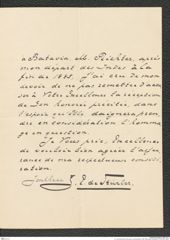 à Batavia M. Richter, après
mon départ des Indes à la
fin de 1888. J'ai cru de mon
devoir de ne pas remettre d'annon
à Votre Excellence la réception
de Son honoré prière, dans
l'espoir qu'Elle daignera pren-
dre en considération l'homma-
ge en question.
Je Vous prie, Excellence,
de vouloir bien agréer l'assu-
rance de ma respectueuse considé-
ration.
J. E. de Sturler.